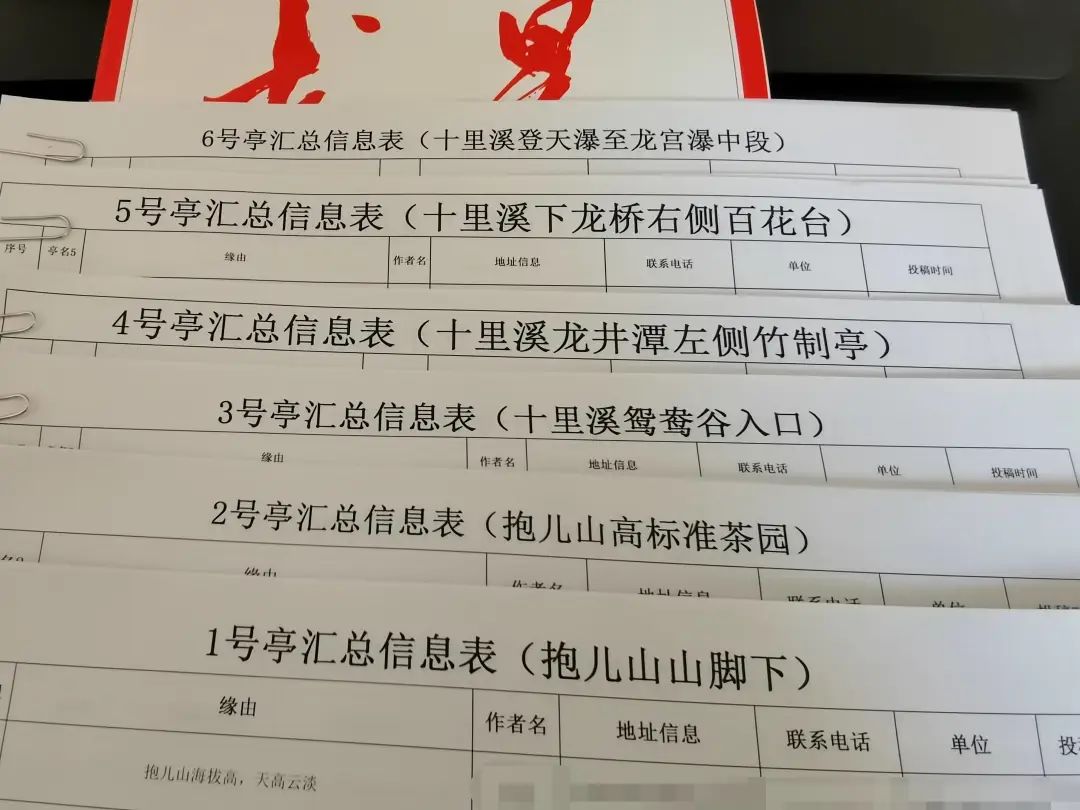 6号亭汇总信息表（十里溪登天瀑至龙宫瀑中段）
5号亭汇总信息表（十里溪下龙桥右侧百花台）
序号 亭名5 缘由 作者名 地址信息 联系电话 单位 投稿时间
4号亭汇总信息表（十里溪龙井潭左侧竹制亭）
3号亭汇总信息表（十里溪鸳鸯谷入口）
缘由 作者名 地址信息 联系电话 单位 投稿时间
2号亭汇总信息表（抱儿山高标准茶园）
缘由 作者名 地址信息 联系电话 单位
1号亭汇总信息表（抱儿山山脚下）
缘由 作者名 地址信息 联系电话 单位 投
抱儿山海拔高，天高云淡